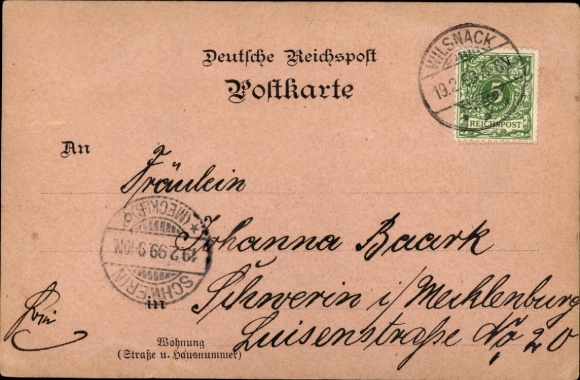 Deutsche Reichspost
Postkarte
WILSNACK
19.2.99
5
REICHSPOST
An
Fräulein
Johanna Baark
SCHWERIN
19.2.99.9-10N.
(MECKLB)
in Schwerin i/Mecklenburg
Frei
Luisenstraße No, 20
Wohnung
(Straße u. Hausnummer)